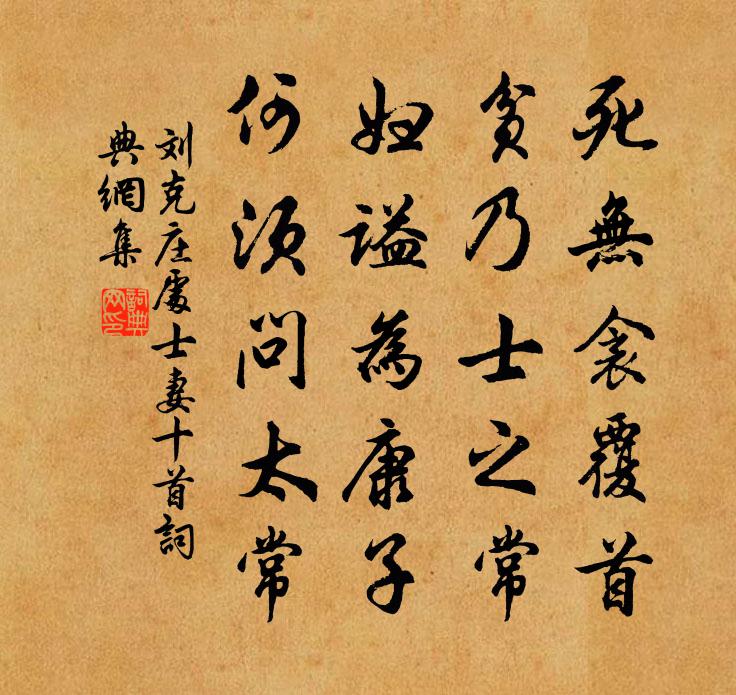 死無衾覆首
貧乃士之常
妇謚為康子
何須问太常
刘克庄處士妻十首詞
典網集
詞典
网印